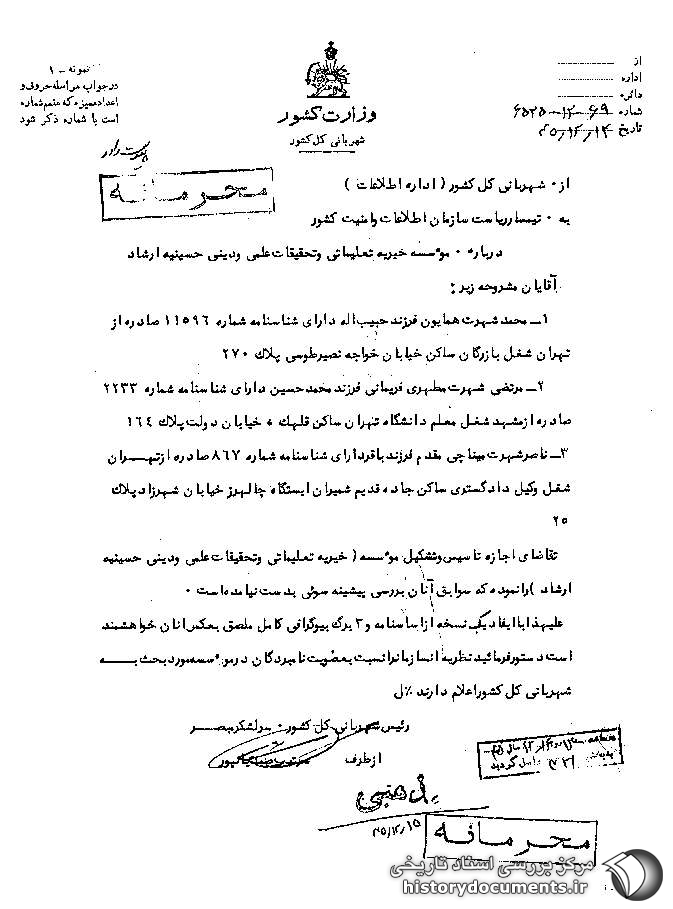 از
اداره
دائره
شماره ۶۹-۱۲-۶۵۲۵
تاریخ ۴۵/۱۲/۱۴
نمونه - ۱
در جواب مراسله حروف و
اعداد ممیزه که متمم شماره
است با شماره ذکر شود
وزارت کشور
شهربانی کل کشور
محرمانه
از ۰ شهربانی کل کشور ( اداره اطلاعات )
به ۰ تیمسار ریاست سازمان اطلاعات و امنیت کشور
درباره ۰ موسسه خیریه تعلیماتی و تحقیقات علمی و دینی حسینیه ارشاد
آقایان مشروحه زیر :
۱ـ محمد شهرت همایون فرزند حبیب اله دارای شناسنامه شماره ۱۱۵۹۶ صادره از
تهران شغل بازرگان ساکن خیابان خواجه نصیرطوسی پلاک ۲۷۰
۲ـ مرتضی شهرت مطهری فریمانی فرزند محمد حسین دارای شناسنامه شماره ۲۲۳۳
صادره از مشهد شغل معلم دانشگاه تهران ساکن قلهک ۰ خیابان دولت پلاک ۱۶۴
۳ـ ناصر شهرت میناچی مقدم فرزند باقر دارای شناسنامه شماره ۸۶۷ صادره از تهران
شغل وکیل دادگستری ساکن جاده قدیم شمیران ایستگاه چالهرز خیابان شهرزاد پلاک
۲۵
تقاضای اجازه تاسیس و تشکیل موسسه ( خیریه تعلیماتی و تحقیقات علمی و دینی حسینیه
ارشاد ) را نموده که سوابق آنان بررسی پیشینه سوئی بدست نیامده است ۰
علیهذا با ایفاد یک نسخه از اساسنامه و ۳ برگ بیوگرافی کامل ملصق بعکس آنان خواهشمند
است دستور فرمائید نظریه انسازمانرا نسبت بعضویت نامبردگان در موسسه مورد بحث به
شهربانی کل کشور اعلام دارند ٪ل
رئیس شهربانی کل کشور ۰ سرلشکر مبصر
از طرف
۴۵/۱۲/۱۵
محرمانه
مرکز بررسی اسناد تاریخی
historydocuments.ir